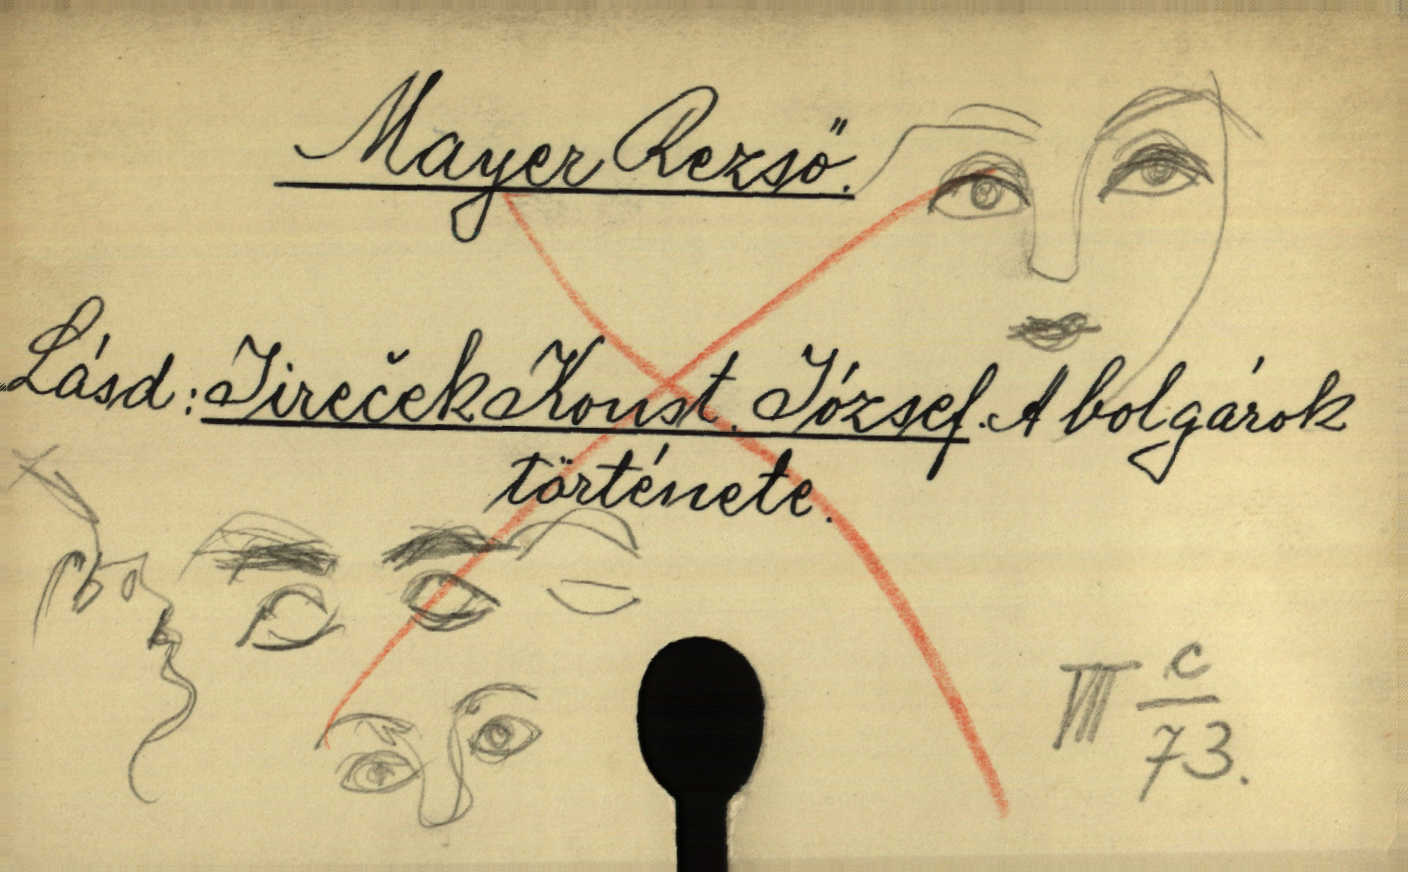 Mayer Rezső.
Lásd: Jireček Konst. József. A bolgárok
története.
VII c/73.